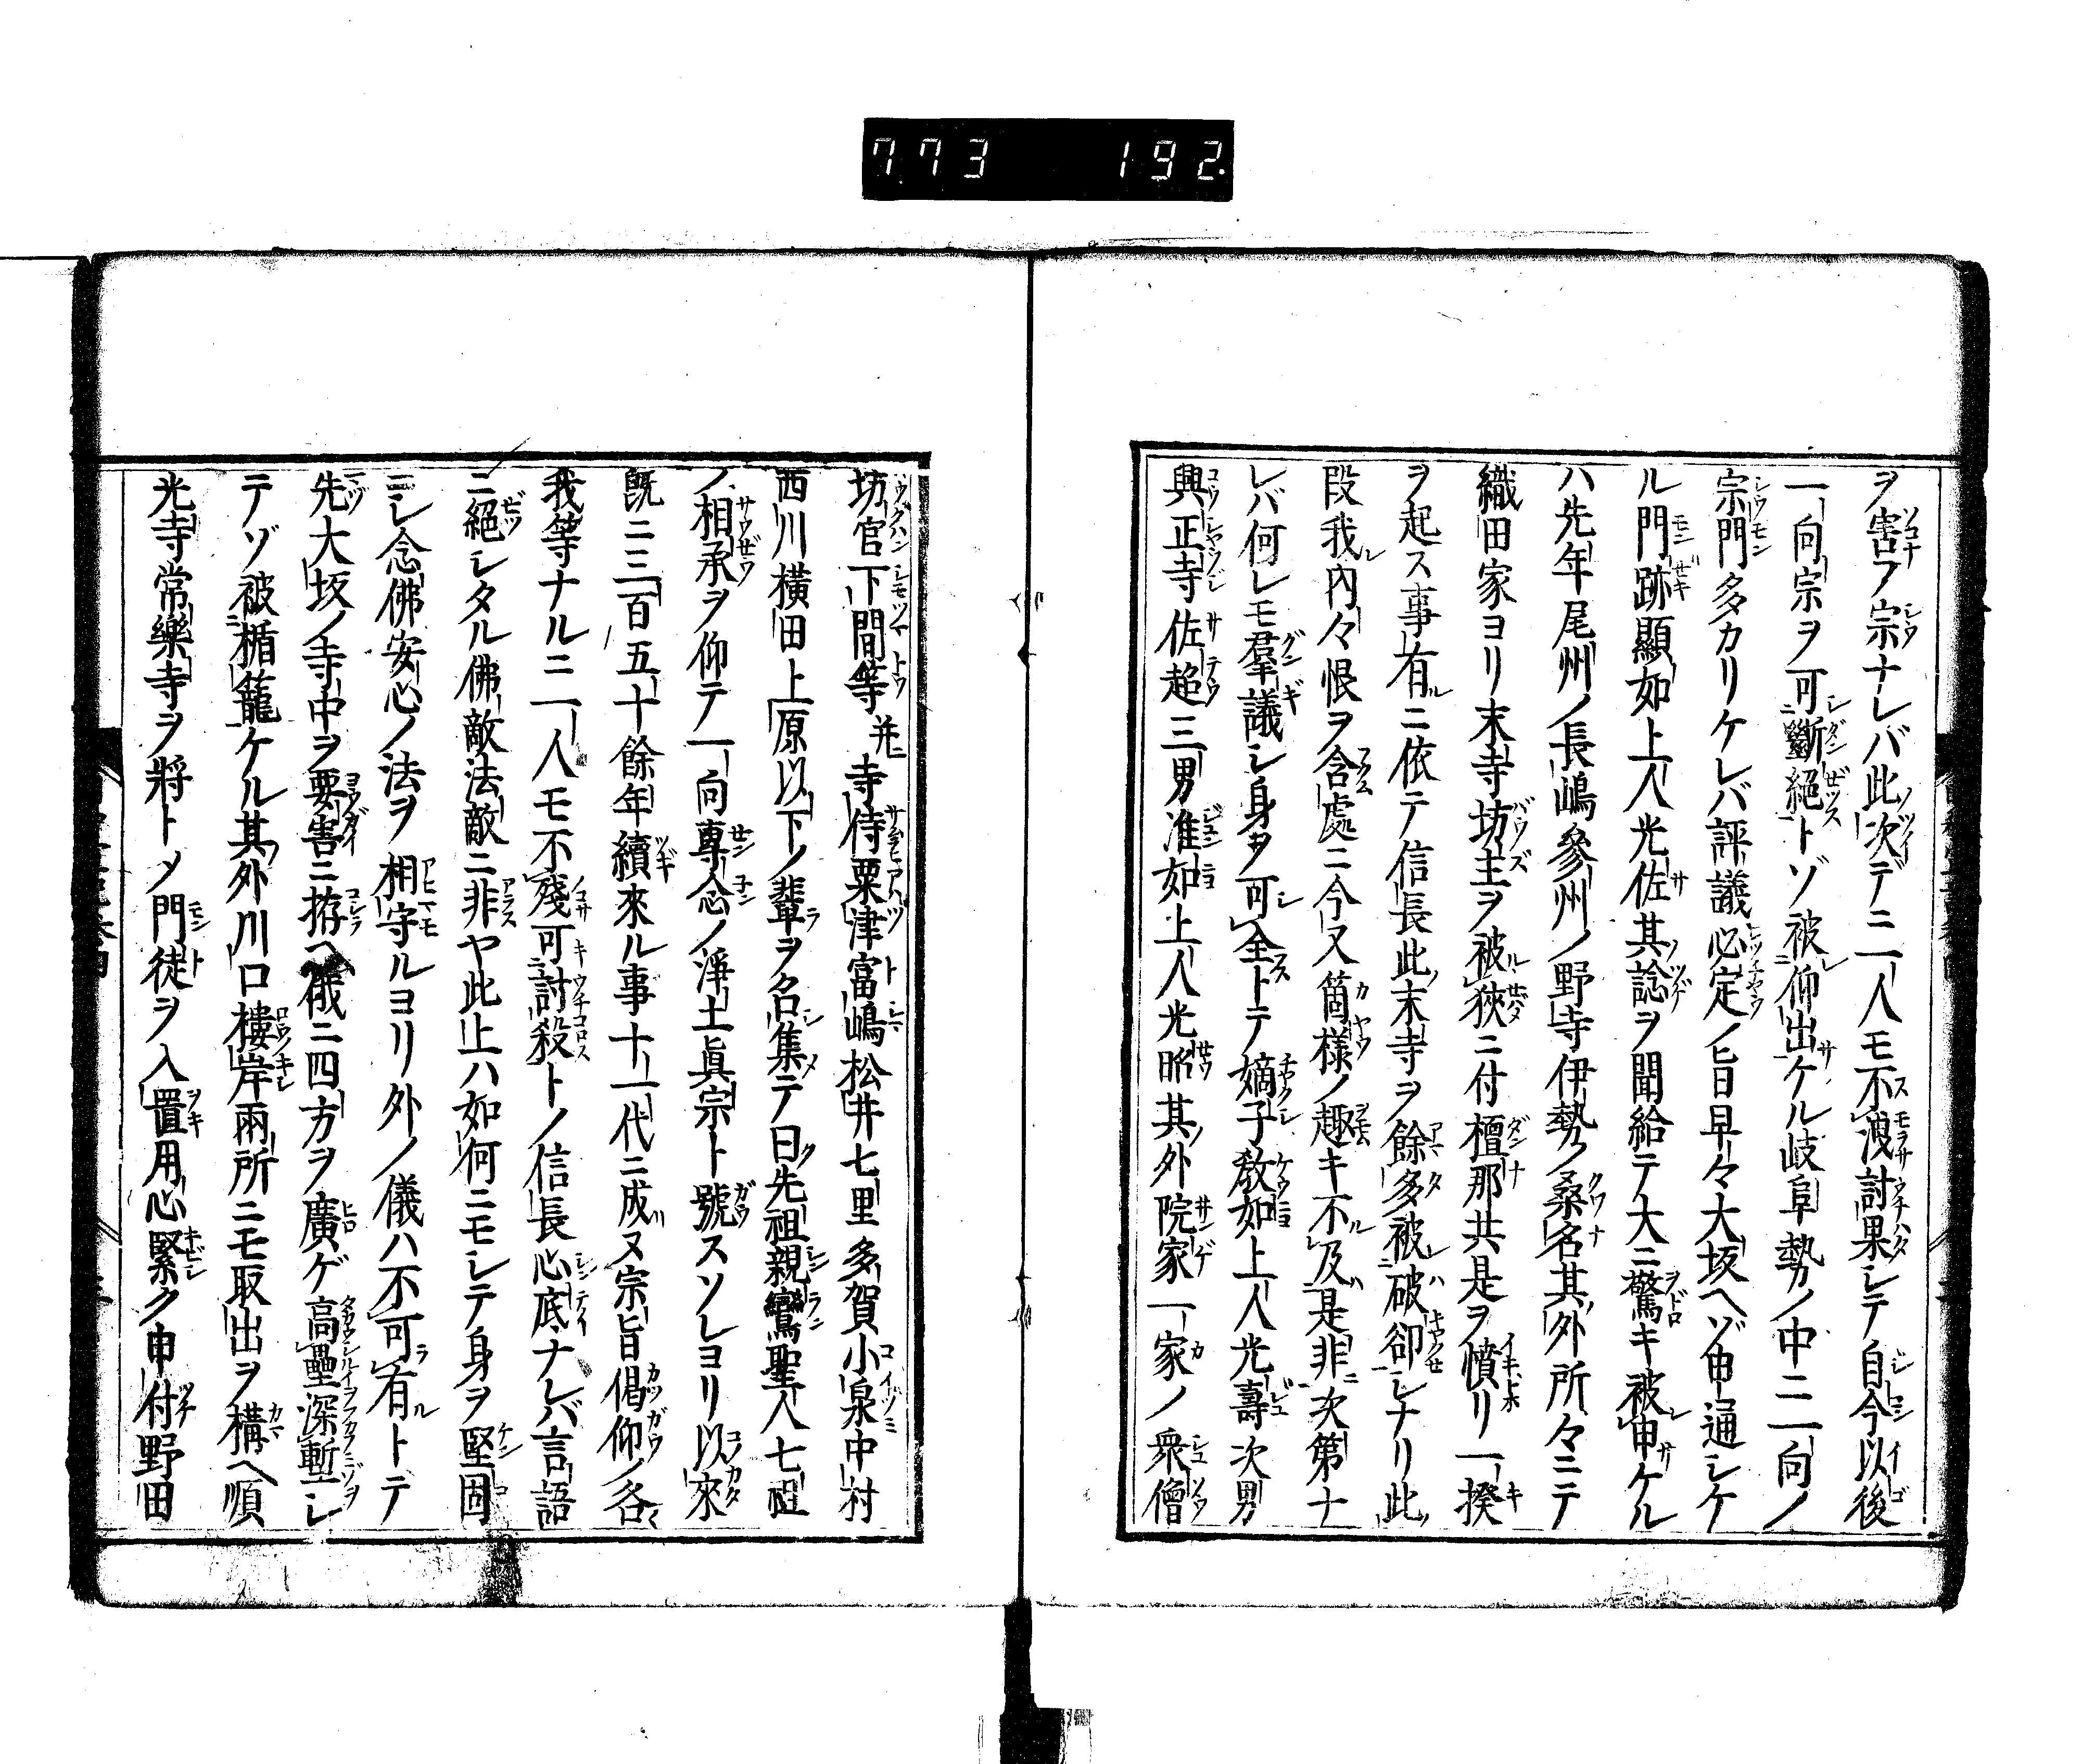 773 192.
ヲ害フ宗ナレバ此次デニ一人モ不洩討果シテ自今以後
一向宗ヲ可斷絕トゾ被仰出ケル岐阜勢ノ中ニ一向ノ
宗門多カリケレバ評議必定ノ旨早々大坂ヘゾ申通シケ
ル門跡顯如上人光佐其諗ヲ聞給テ大ニ驚キ被申ケル
ハ先年尾州ノ長嶋參州ノ野寺伊勢ノ桑名其外所々ニテ
織田家ヨリ末寺坊主ヲ被狹ニ付檀那共是ヲ憤リ一揆
ヲ起ス事有ニ依テ信長此末寺ヲ餘多被破卻シナリ此
段我內々恨ヲ含處ニ今又箇樣ノ趣キ不及是非次第ナ
レバ何レモ羣議シ身ヲ可全トテ嫡子敎如上人光壽次男
興正寺佐超三男准如上人光昭其外院家一家ノ衆僧
坊官下間等并寺侍粟津富嶋松井七里多賀小泉中村
西川橫田上原以下ノ輩ヲ召集テ曰先祖親鸞聖人七祖
ノ相承ヲ仰テ一向專念ノ淨土眞宗ト號スソレヨリ以來
既ニ三百五十餘年續來ル事十一代ニ成ヌ宗旨偈仰ノ各
我等ナルニ一人モ不殘可討殺トノ信長心底ナレバ言語
ニ絕シタル佛敵法敵ニ非ヤ此上ハ如何ニモシテ身ヲ堅固
ニシ念佛安心ノ法ヲ相守ルヨリ外ノ儀ハ不可有トテ
先大坂ノ寺中ヲ要害ニ拵ヘ俄ニ四方ヲ廣ゲ高壘深塹シ
テゾ被楯籠ケル其外川口樓岸兩所ニモ取出ヲ構ヘ順
光寺常樂寺ヲ將トメ門徒ヲ入置用心緊ク申付野田